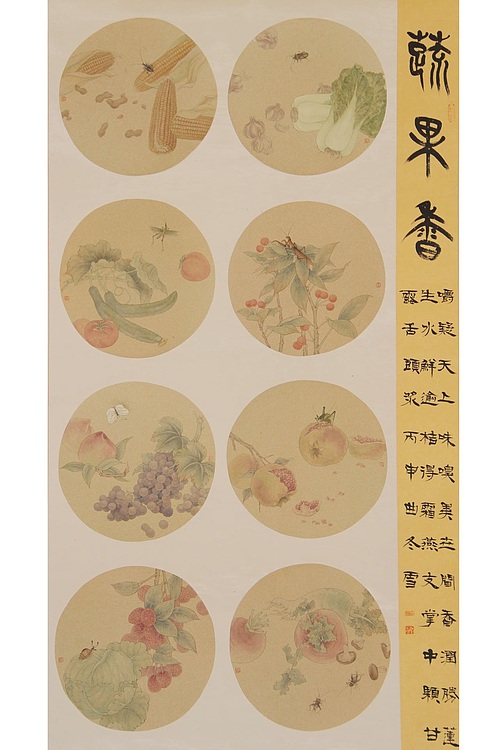 蔬果香
嚼疑天上味嗅異世間香潤勝蓮
生水鮮逾桔得霜燕支掌中顆甘
露舌頭漿丙申曲冬雪